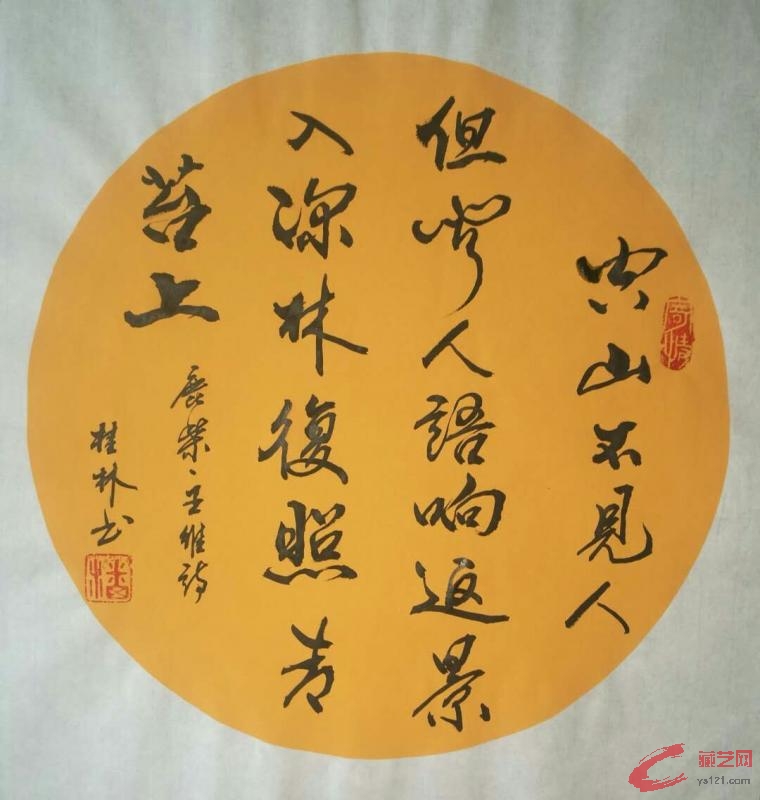 空山不見人
但聞人語响返景
入深林復照青
苔上
鹿柴·王維詩
桂林书
藏艺网
ys121.com